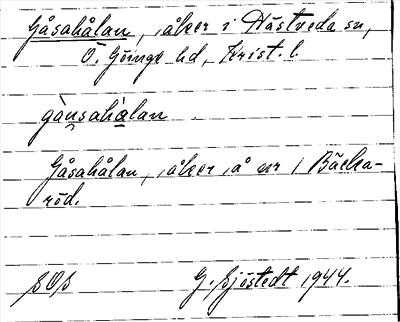 Gåsahålan, åker i Hästveda sn,
Ö. Göinge hd, Krist. l.
gàusahàlan
Gåsahålan, åker å nr 1 Bäcka-
röd.
SOS G. Sjöstedt 1944.